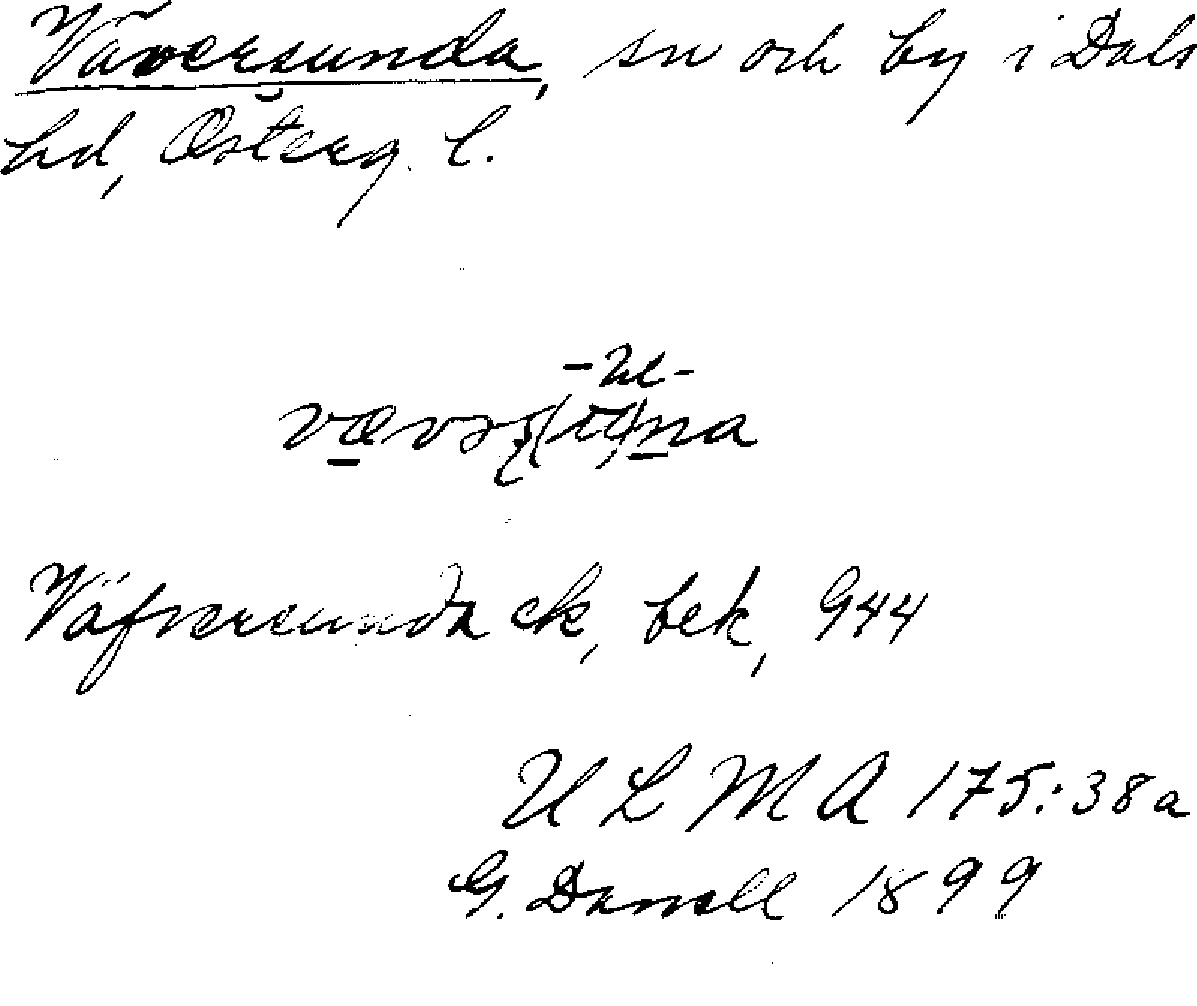 Väversunda, sn och by i Dals
hd, Österg. l.
Väfversunda sk, bek, 944
U L M A 175:38a
G. Danell 1899